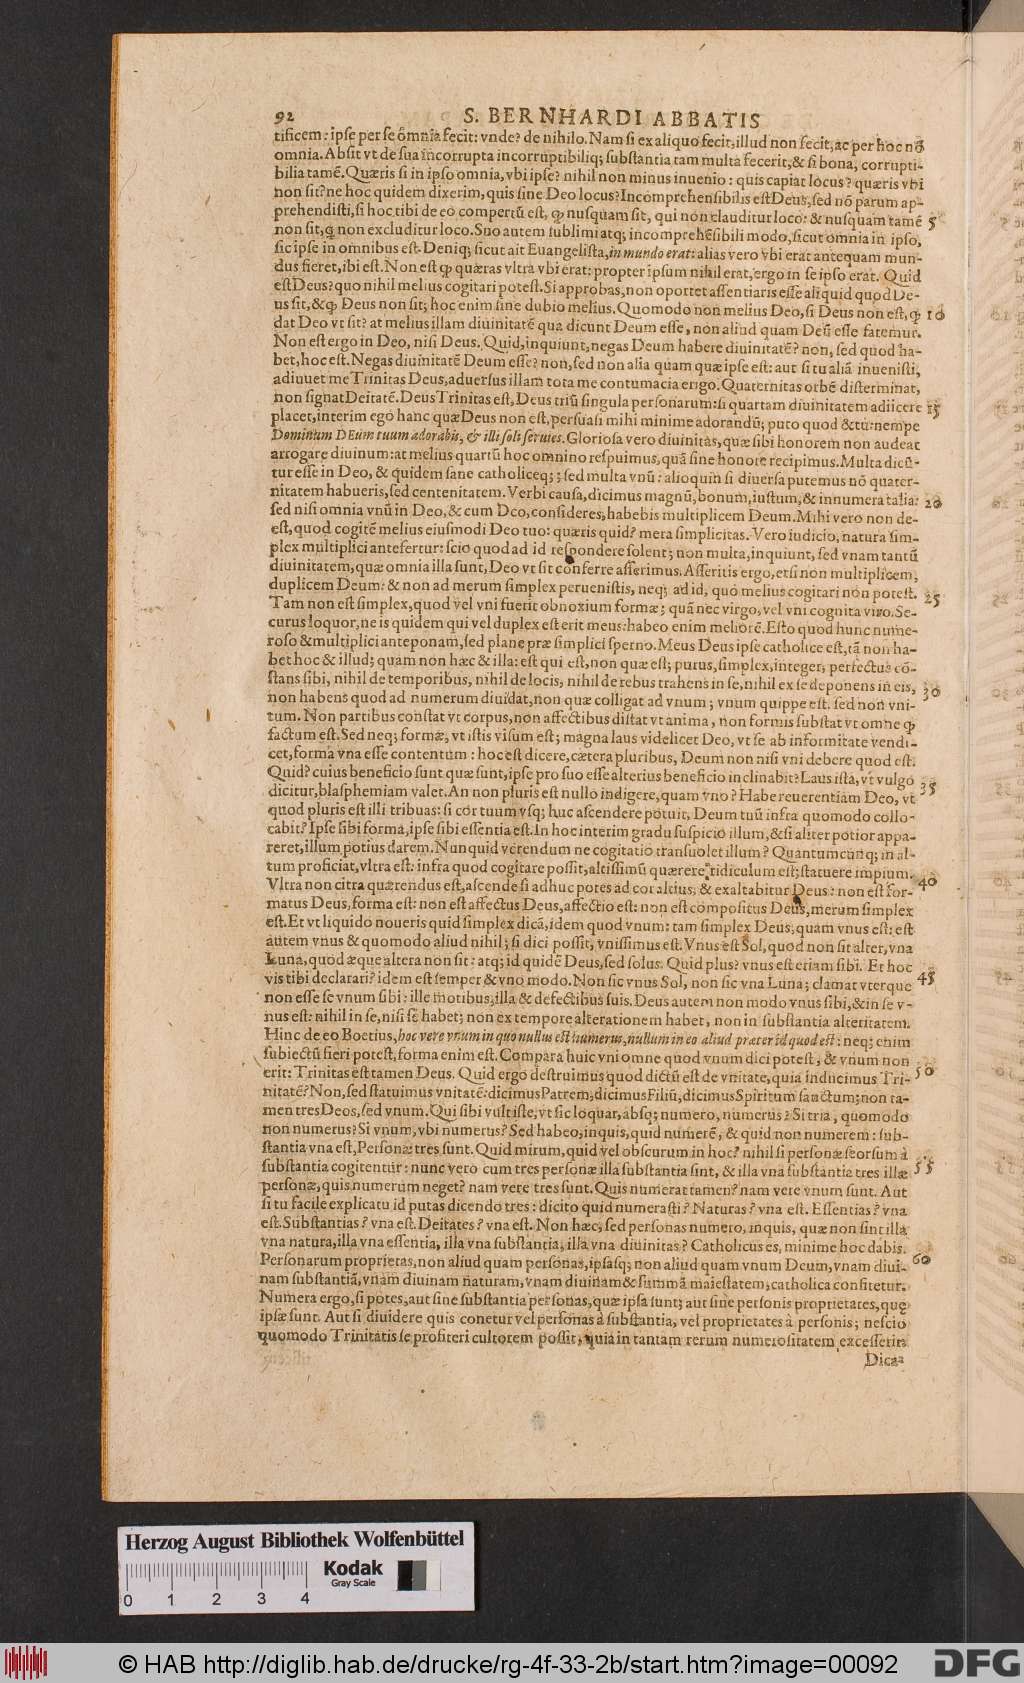 92 S. BERNHARDI ABBATIS
tificem: ipſe per ſe omnia fecit: vnde? de nihilo. Nam ſi ex aliquo fecit, illud non fecit, ac per hoc nõ
omnia. Abſit vt de ſua incorrupta incorruptibiliq; ſubſtantia tam multa fecerit, & ſi bona, corrupti-
bilia tamẽ. Quæris ſi in ipſo omnia, vbi ipſe? nihil non minus inuenio: quis capiat locus? quæris vbi
non ſit? ne hoc quidem dixerim, quis ſine Deo locus? Incomprehenſibilis eſt Deus, ſed nõ parum ap-
prehendiſti, ſi hoc tibi de eo compertũ eſt, ꝙ nuſquam ſit, qui non clauditur loco: & nuſquam tamẽ 5
non ſit, ꝗ non excluditur loco. Suo autem ſublimi atq; incomprehẽſibili modo, ſicut omnia in ipſo,
ſic ipſe in omnibus eſt. Deniq; ſicut ait Euangeliſta, in mundo erat: alias vero vbi erat antequam mun-
dus fieret, ibi eſt. Non eſt ꝙ quæras vltra vbi erat: propter ipſum nihil erat, ergo in ſe ipſo erat. Quid
eſt Deus? quo nihil melius cogitari poteſt. Si approbas, non oportet aſſentiaris eſſe aliquid quod De-
us ſit, & ꝙ Deus non ſit; hoc enim ſine dubio melius. Quomodo non melius Deo, ſi Deus non eſt, ꝙ 10
dat Deo vt ſit? at melius illam diuinitatẽ qua dicunt Deum eſſe, non aliud quam Deũ eſſe fatemur.
Non eſt ergo in Deo, niſi Deus. Quid, inquiunt, negas Deum habere diuinitatẽ? non, ſed quod ha-
bet, hoc eſt. Negas diuinitatẽ Deum eſſe? non, ſed non alia quam quæ ipſe eſt: aut ſi tu aliã inueniſti,
adiuuet me Trinitas Deus, aduerſus illam tota me contumacia erigo. Quaternitas orbẽ diſterminat,
non ſignat Deitatẽ. Deus Trinitas eſt, Deus triũ ſingula perſonarum: ſi quartam diuinitatem adiicere 15
placet, interim ego hanc quæ Deus non eſt, perſuaſi mihi minime adorandũ; puto quod & tu: nempe
Dominum DEum tuum adorabis, & illi ſoli ſeruies. Glorioſa vero diuinitas, quæ ſibi honorem non audeat
arrogare diuinum: at melius quartũ hoc omnino reſpuimus, quã ſine honore recipimus. Multa dicũ-
tur eſſe in Deo, & quidem ſane catholiceq;; ſed multa vnũ: alioquin ſi diuerſa putemus nõ quater-
nitatem habueris, ſed centenitatem. Verbi cauſa, dicimus magnũ, bonum, iuſtum, & innumera talia: 20
ſed niſi omnia vnũ in Deo, & cum Deo, conſideres, habebis multiplicem Deum. Mihi vero non de-
eſt, quod cogitẽ melius eiuſmodi Deo tuo: quæris quid? mera ſimplicitas. Vero iudicio, natura ſim-
plex multiplici antefertur: ſcio quod ad id reſpondere ſolent; non multa, inquiunt, ſed vnam tantũ
diuinitatem, quæ omnia illa ſunt, Deo vt ſit conferre aſſerimus. Aſſeritis ergo, etſi non multiplicem,
duplicem Deum: & non ad merum ſimplex perueniſtis, neq; ad id, quo melius cogitari non poteſt. 25
Tam non eſt ſimplex, quod vel vni fuerit obnoxium formæ; quã nec virgo, vel vni cognita viro. Se-
curus loquor, ne is quidem qui vel duplex eſt erit meus: habeo enim meliorẽ. Eſto quod hunc nume-
roſo & multiplici anteponam, ſed plane præ ſimplici ſperno. Meus Deus ipſe catholice eſt, tã non ha-
bet hoc & illud; quam non hæc & illa: eſt qui eſt, non quæ eſt; purus, ſimplex, integer, perfectus cõ-
ſtans ſibi, nihil de temporibus, nihil de locis, nihil de rebus trahens in ſe, nihil ex ſe deponens in eis, 30
non habens quod ad numerum diuidat, non quæ colligat ad vnum; vnum quippe eſt. ſed non vni-
tum. Non partibus conſtat vt corpus, non affectibus diſtat vt anima, non formis ſubſtat vt omne ꝙ
factum eſt. Sed neq; formæ, vt iſtis viſum eſt; magna laus videlicet Deo, vt ſe ab informitate vendi-
cet, forma vna eſſe contentum: hoc eſt dicere, cætera pluribus, Deum non niſi vni debere quod eſt.
Quid? cuius beneficio ſunt quæ ſunt, ipſe pro ſuo eſſe alterius beneficio inclinabit? Laus iſta, vt vulgo
dicitur, blaſphemiam valet. An non pluris eſt nullo indigere, quam vno? Habe reuerentiam Deo, vt 35
quod pluris eſt illi tribuas: ſi cor tuum vſq; huc aſcendere potuit, Deum tuũ infra quomodo collo-
cabit? Ipſe ſibi forma, ipſe ſibi eſſentia eſt. In hoc interim gradu ſuſpicio illum, & ſi aliter potior appa-
reret, illum potius darem. Nunquid verendum ne cogitatio tranſuolet illum? Quantumcunq; in al-
tum proficiat, vltra eſt: infra quod cogitare poſſit, altiſſimũ quærere ridiculum eſt; ſtatuere impium.
Vltra non citra quærendus eſt, aſcende ſi adhuc potes ad cor altius, & exaltabitur Deus: non eſt for- 40
matus Deus, forma eſt: non eſt affectus Deus, affectio eſt: non eſt compoſitus Deus, merum ſimplex
eſt. Et vt liquido noueris quid ſimplex dicã, idem quod vnum: tam ſimplex Deus, quam vnus eſt: eſt
autem vnus & quomodo aliud nihil; ſi dici poſſit, vniſſimus eſt. Vnus eſt Sol, quod non ſit alter, vna
Luna, quod æque altera non ſit: atq; id quidẽ Deus, ſed ſolus. Quid plus? vnus eſt etiam ſibi. Et hoc
vis tibi declarari? idem eſt ſemper & vno modo. Non ſic vnus Sol, non ſic vna Luna; clamat vterque 45
non eſſe ſe vnum ſibi: ille motibus, illa & defectibus ſuis. Deus autem non modo vnus ſibi, & in ſe v-
nus eſt: nihil in ſe, niſi ſe habet; non ex tempore alterationem habet, non in ſubſtantia alteritatem.
Hinc de eo Boetius, hoc vere vnum in quo nullus eſt numerus, nullum in eo aliud præter id quod eſt: neq; enim
ſubiectũ fieri poteſt, forma enim eſt. Compara huic vni omne quod vnum dici poteſt, & vnum non
erit: Trinitas eſt tamen Deus. Quid ergo deſtruimus quod dictũ eſt de vnitate, quia inducimus Tri- 50
nitatẽ? Non, ſed ſtatuimus vnitatẽ: dicimus Patrem, dicimus Filiũ, dicimus Spiritum ſanctum; non ta-
men tres Deos, ſed vnum. Qui ſibi vult iſte, vt ſic loquar, abſq; numero, numerus? Si tria, quomodo
non numerus? Si vnum, vbi numerus? Sed habeo, inquis, quid numerẽ, & quid non numerem: ſub-
ſtantia vna eſt, Perſonæ tres ſunt. Quid mirum, quid vel obſcurum in hoc? nihil ſi perſonæ ſeorſum à
ſubſtantia cogitentur: nunc vero cum tres perſonæ illa ſubſtantia ſint, & illa vna ſubſtantia tres illæ 55
perſonæ, quis numerum neget? nam vere tres ſunt. Quis numerat tamen? nam vere vnum ſunt. Aut
ſi tu facile explicatu id putas dicendo tres: dicito quid numeraſti? Naturas? vna eſt. Eſſentias? vna
eſt. Subſtantias? vna eſt. Deitates? vna eſt. Non hæc, ſed perſonas numero, inquis, quæ non ſint illa
vna natura, illa vna eſſentia, illa vna ſubſtantia, illa vna diuinitas? Catholicus es, minime hoc dabis.
Perſonarum proprietas, non aliud quam perſonas, ipſasq; non aliud quam vnum Deum, vnam diui- 60
nam ſubſtantiã, vnam diuinam naturam, vnam diuinam & ſummã maieſtatem, catholica confitetur.
Numera ergo, ſi potes, aut ſine ſubſtantia perſonas, quæ ipſa ſunt; aut ſine perſonis proprietates, quę
ipſæ ſunt. Aut ſi diuidere quis conetur vel perſonas à ſubſtantia, vel proprietates à perſonis; neſcio
quomodo Trinitatis ſe profiteri cultorem poſſit, quia in tantam rerum numeroſitatem exceſſerit.
Herzog August Bibliothek Wolfenbüttel
Kodak
Gray Scale
0 1 2 3 4
© HAB http://diglib.hab.de/drucke/rg-4f-33-2b/start.htm?image=00092
DFG